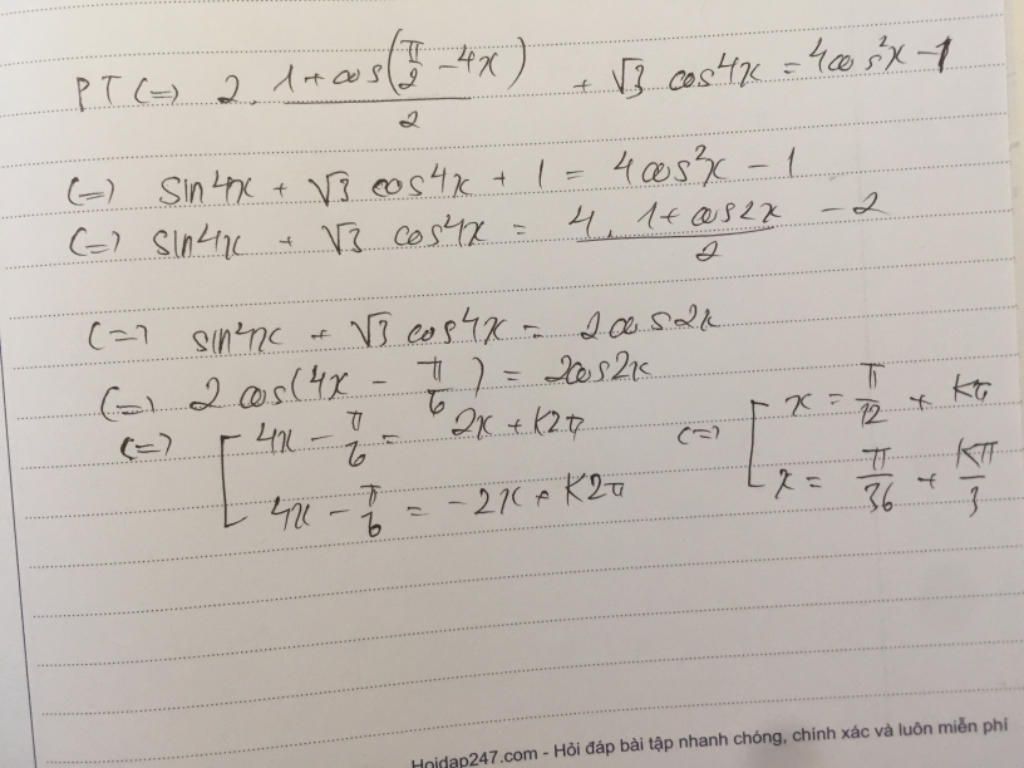 PT (=) 2. (1 + cos(π/2 - 4x))/2 + √3 cos4x = 4cos²x - 1
(=) sin4x + √3 cos4x + 1 = 4cos²x - 1
(=) sin4x + √3 cos4x = 4. (1 + cos2x)/2 - 2
(=) sin4x + √3 cos4x = 2cos2x
(=) 2 cos(4x - π/6) = 2cos2x
(=) [ 4x - π/6 = 2x + K2π (=) [ x = π/12 + Kπ
4x - π/6 = -2x + K2π x = π/36 + Kπ/3
Hoidap247.com - Hỏi đáp bài tập nhanh chóng, chính xác và luôn miễn phí